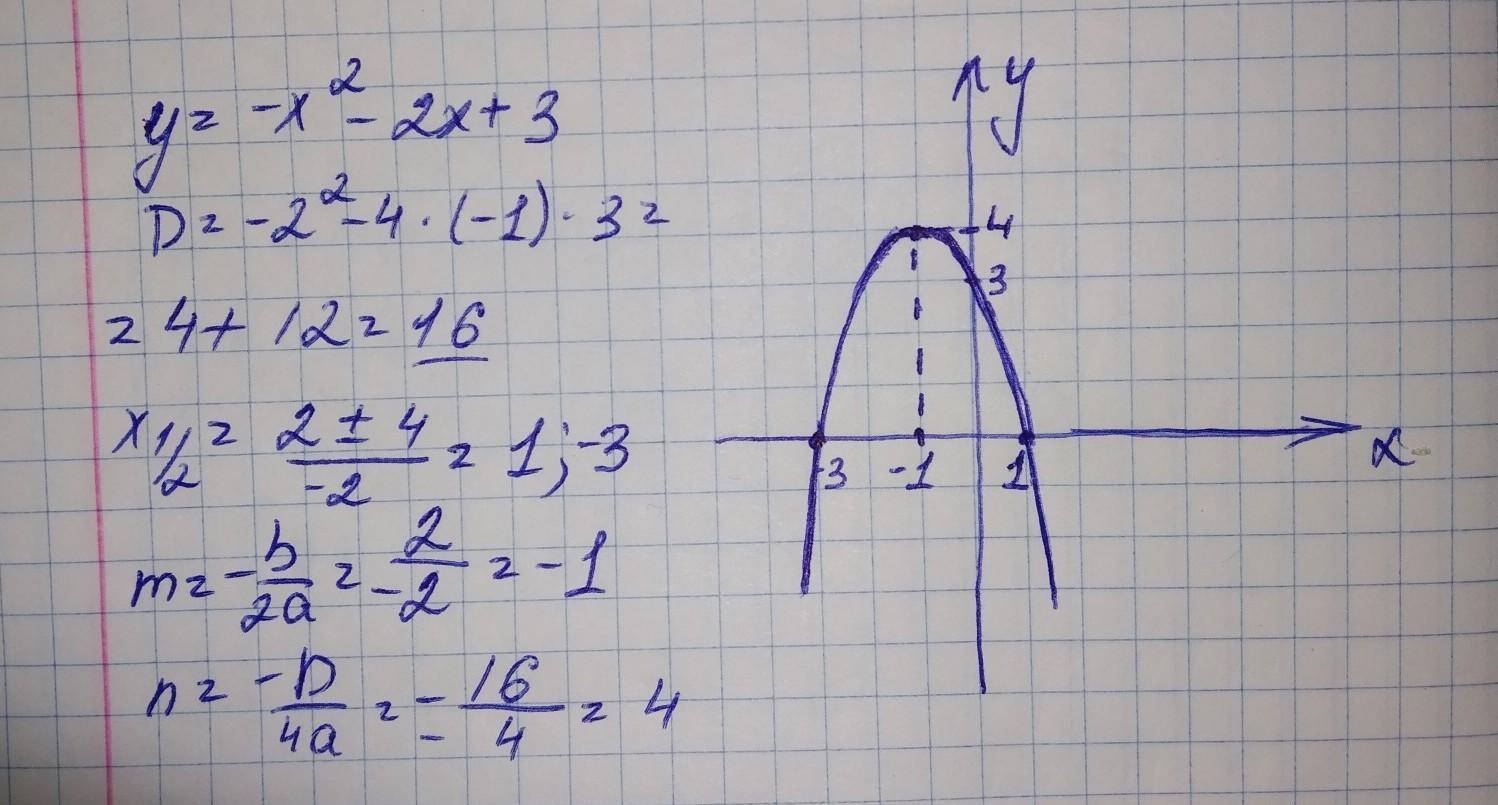 y = -x² - 2x + 3
D = -2² - 4 · (-1) · 3 =
= 4 + 12 = 16
x 1/2 = (2 ± 4)/(-2) = 1; -3
m = -b/2a = 2/-2 = -1
n = -D/4a = -16/-4 = 4
y
4
3
-3 -1 1
x